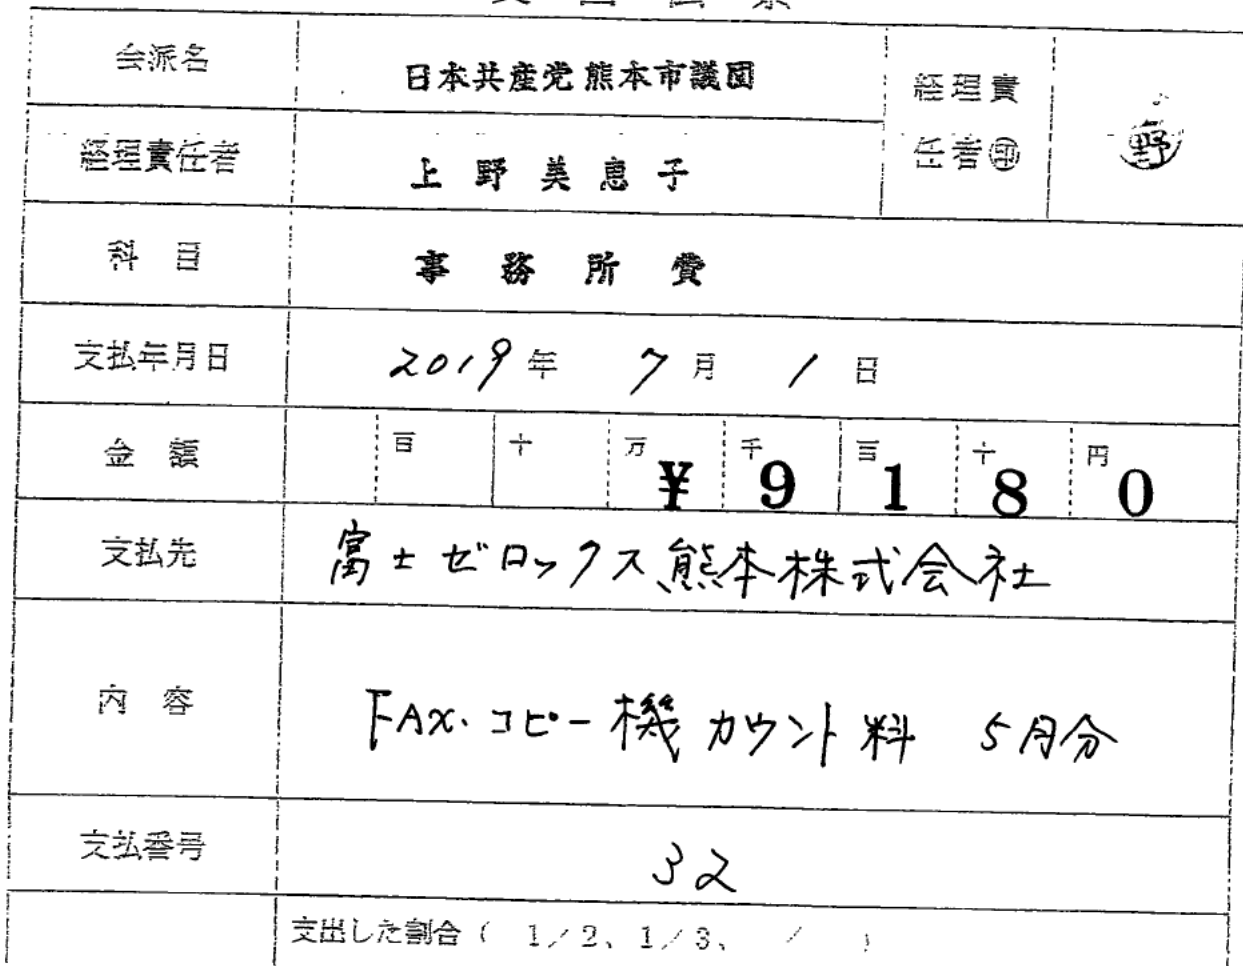 支出伝票
会派名 日本共産党熊本市議団 経理責任者㊞ 野
経理責任者 上野美恵子
科目 事務所費
支払年月日 2019年 7月 1日
金額 百 十 万 千 百 十 円 ¥9180
支払先 富士ゼロックス熊本株式会社
内容 FAX.コピー機カウント料 5月分
支払番号 32
支出した割合( 1/2、1/3、 / )